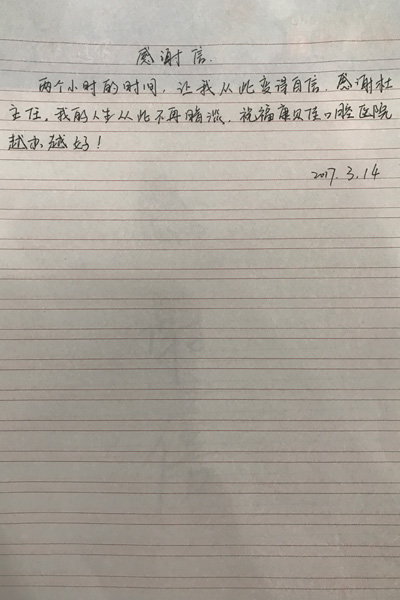 感谢信.
两个小时的时间，让我从此变得自信.感谢杜
主任,我的人生从此不再暗淡.祝福康贝佳口腔医院
越办越好！
2017.3.14